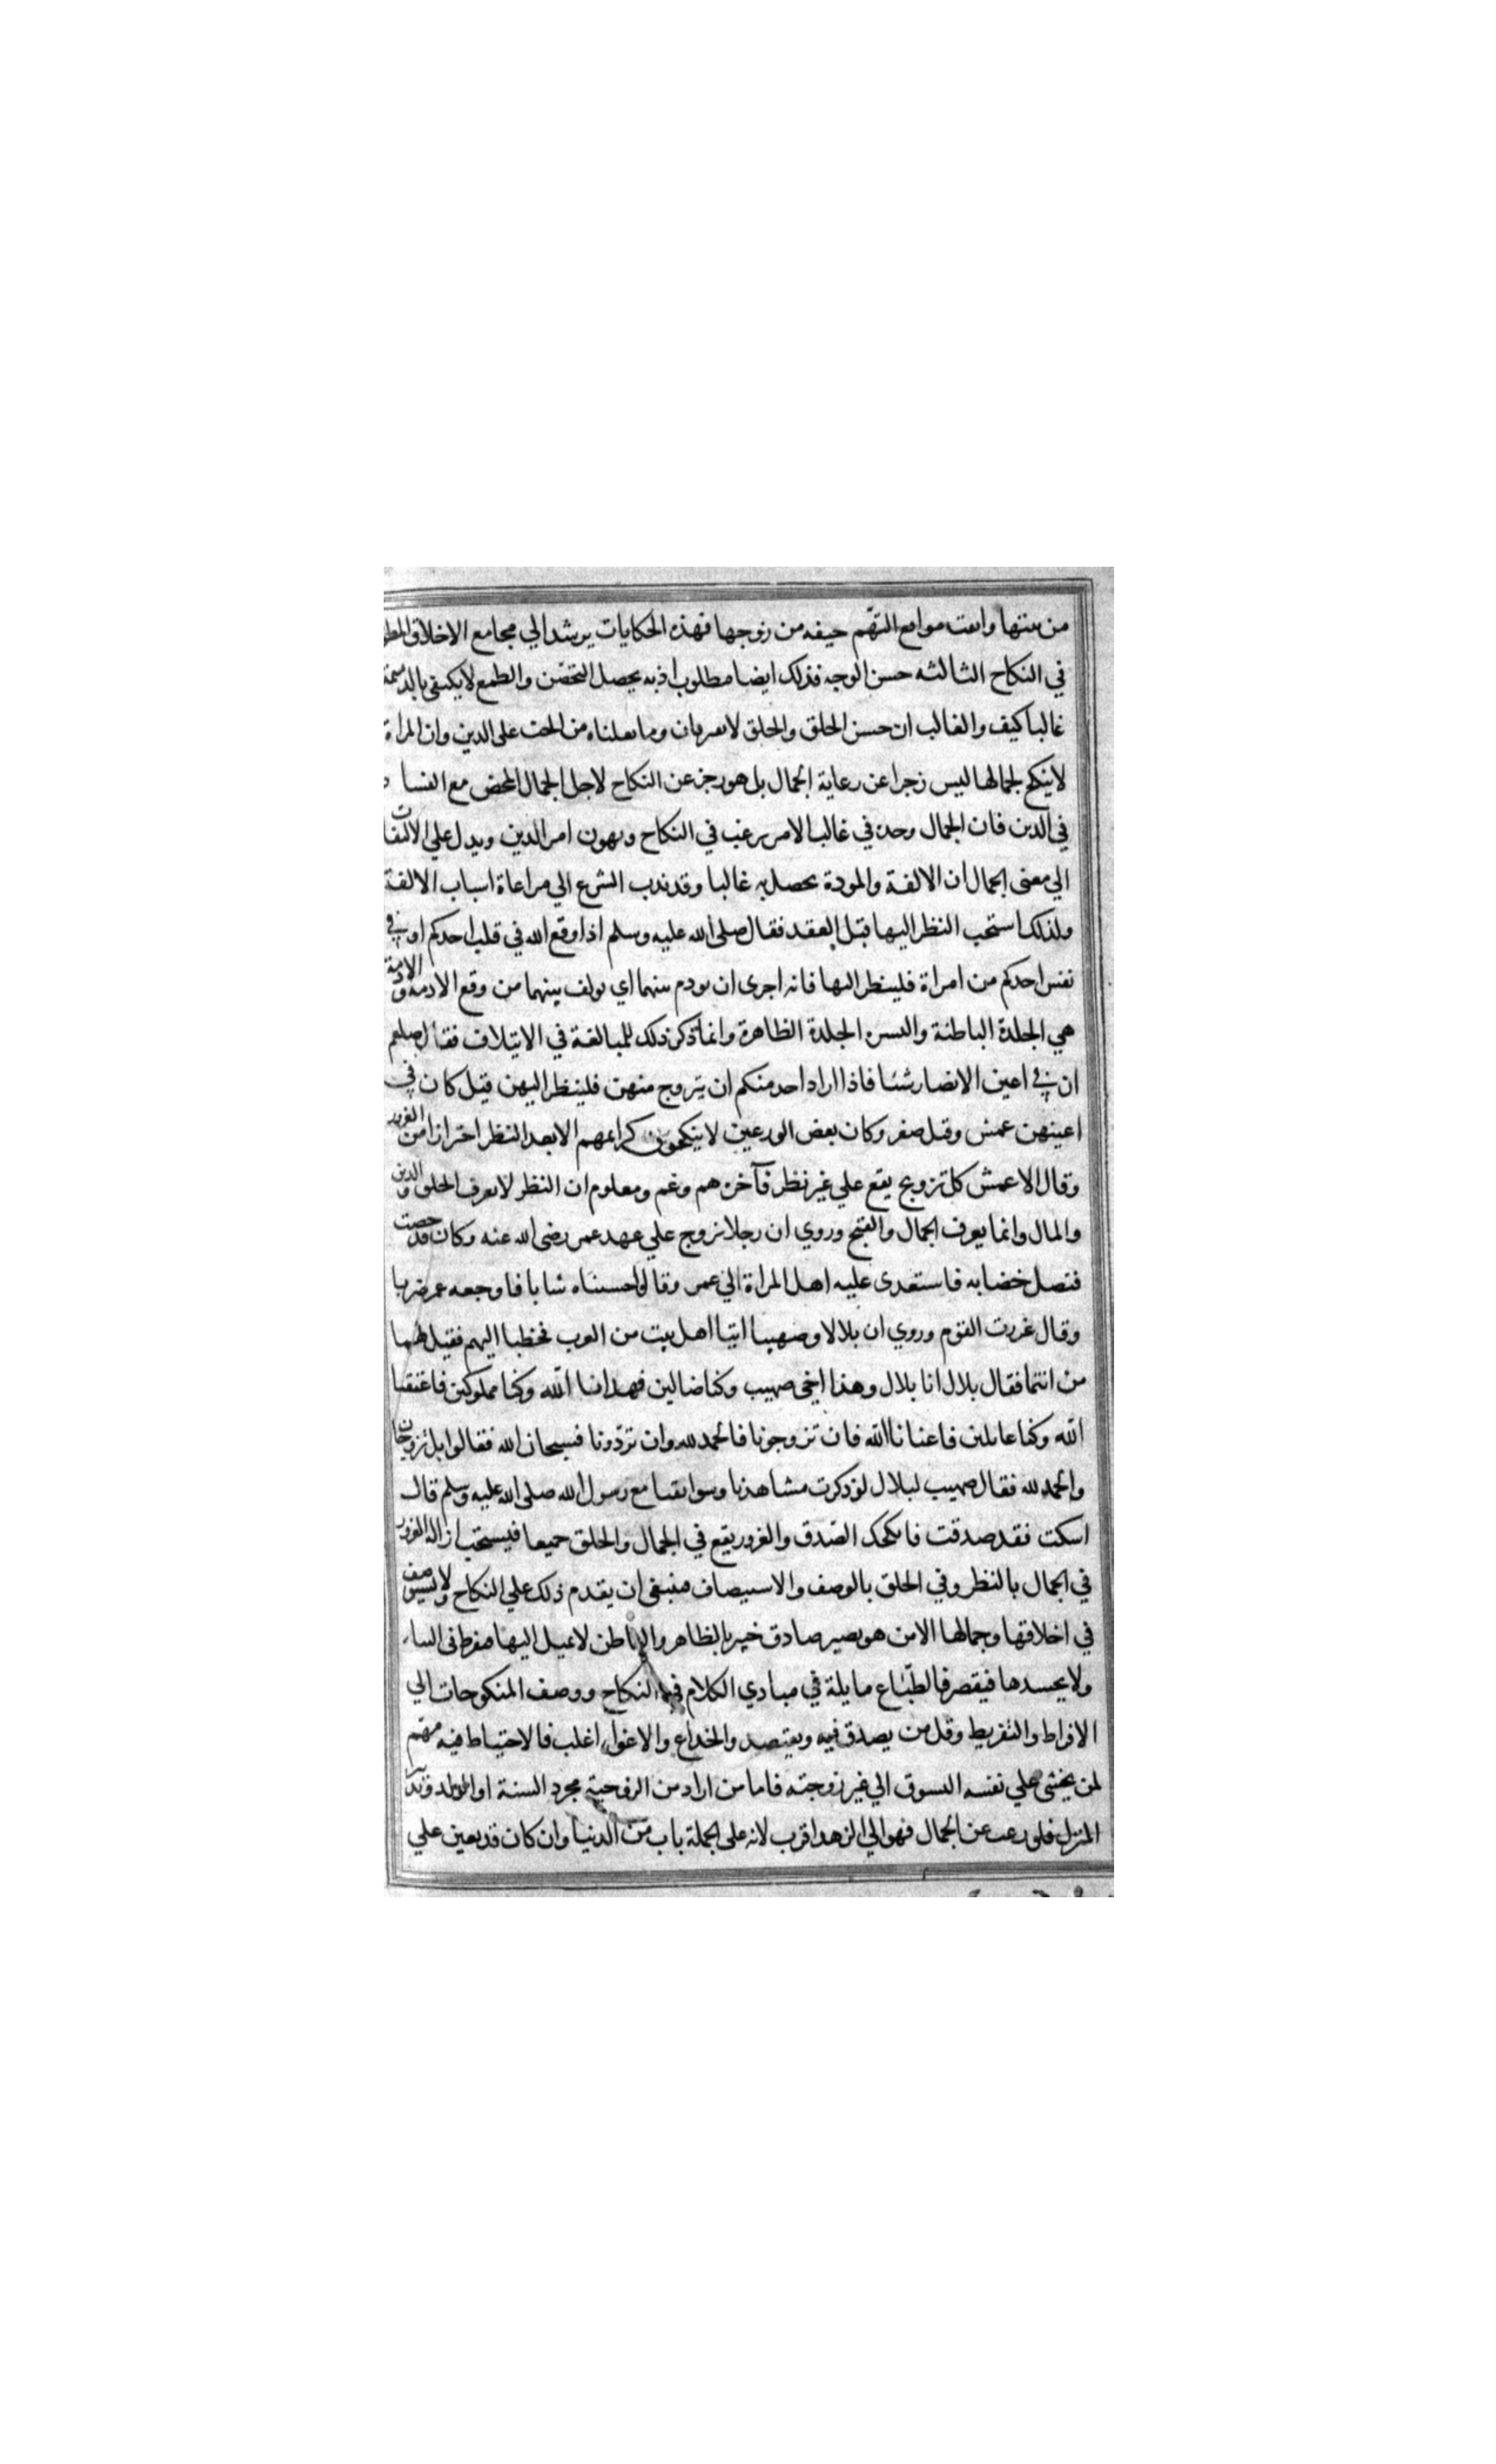 من بيتها واتقت مواضع التهم خيفه من زوجها فهذه الحكايات يرشد الي مجامع الاخلاق المطلو
في النكاح الثالثه حسن الوجه فذلك ايضا مطلوب اذ به يحصل التحصّن والطمع لا يكتفي بالدميمة
غالبا كيف والغالب ان حسن الخلق والخلق لا يفترقان وما نقلناه من الحث على الدين وان المراة
لا ينكح لجمالها ليس زجرا عن رعاية الجمال بل هو زجر عن النكاح لاجل الجمال المحض مع الفساد
في الدين فان الجمال وحده في غالب الامر يرغب في النكاح ويهون امر الدين ويدل علي الالتفات
الي معنى الجمال ان الالفة والمودة يحصل به غالبا وقد ندب الشرع الي مراعاة اسباب الالفة
ولذلك استحب النظر اليها قبل العقد فقال صلى الله عليه وسلم اذا وقع الله في قلب احدكم او في
نفس احدكم من امراة فلينظر اليها فانه احرى ان يودم بينهما اي يولف بينهما من وقع الادمة و الادمة
هي الجلدة الباطنة والبسرة الجلدة الظاهرة وانما ذكر ذلك للمبالغة في الايتلاف فقال صلعم
ان في اعين الانصار شيئا فاذا اراد احد منكم ان يتزوج منهن فلينظر اليهن قيل كان في
اعينهن عمش وقيل صغر وكان بعض الورعين لا ينكحون كرايمهم الا بعد النظر احترازا من الغرور
وقال الاعمش كل تزويج يقع علي غير نظر فآخره هم وغم ومعلوم ان النظر لا يعرف الخلق و الدين
والمال وانما يعرف الجمال والقبح وروي ان رجلا تزوج علي عهد عمر رضى الله عنه وكان قد خضب
فنصل خضابه فاستعدى عليه اهل المراة الي عمر وقالوا حسبناه شابا فاوجعه عمر ضربا
وقال غررت القوم وروي ان بلالا وصهيبا اتيا اهل بيت من العرب فخطبا اليهم فقيل لهما
من انتما فقال بلال انا بلال وهذا اخي صهيب وكنا ضالين فهدانا الله وكنا مملوكين فاعتقنا
الله وكنا عايلين فاغنانا الله فان تزوجونا فالحمد لله وان تردّونا فسبحان الله فقالوا بل تزوجان
والحمد لله فقال صهيب لبلال لو ذكرت مشاهدنا وسوابقنا مع رسول الله صلى الله عليه وسلم قال
اسكت فقد صدقت فانكحك الصّدق والغرور يقع في الجمال والخلق جميعا فيستحب ازالة الغرور
في الجمال بالنظر وفي الخلق بالوصف والاستيصاف فينبغي ان يقدم ذلك علي النكاح ولا يستوصف
في اخلاقها وجمالها الا من هو بصير صادق خبير بالظاهر والباطن لا يميل اليها فيفرط في الثناء
ولا يحسدها فيقصر فالطبّاع مايلة في مبادي الكلام في النكاح ووصف المنكوحات الي
الافراط والتفريط وقل من يصدق فيه ويقتصد والخداع والاغوا اغلب فالاحتياط فيه مهم
لمن يخشى علي نفسه التشوق الي غير زوجته فاما من اراد من الزوجية مجرد السنة او الولد و تدبير
المنزل فلو رغب عن الجمال فهو الي الزهد اقرب لانه على الجملة باب من الدنيا وان كان قد يعين علي